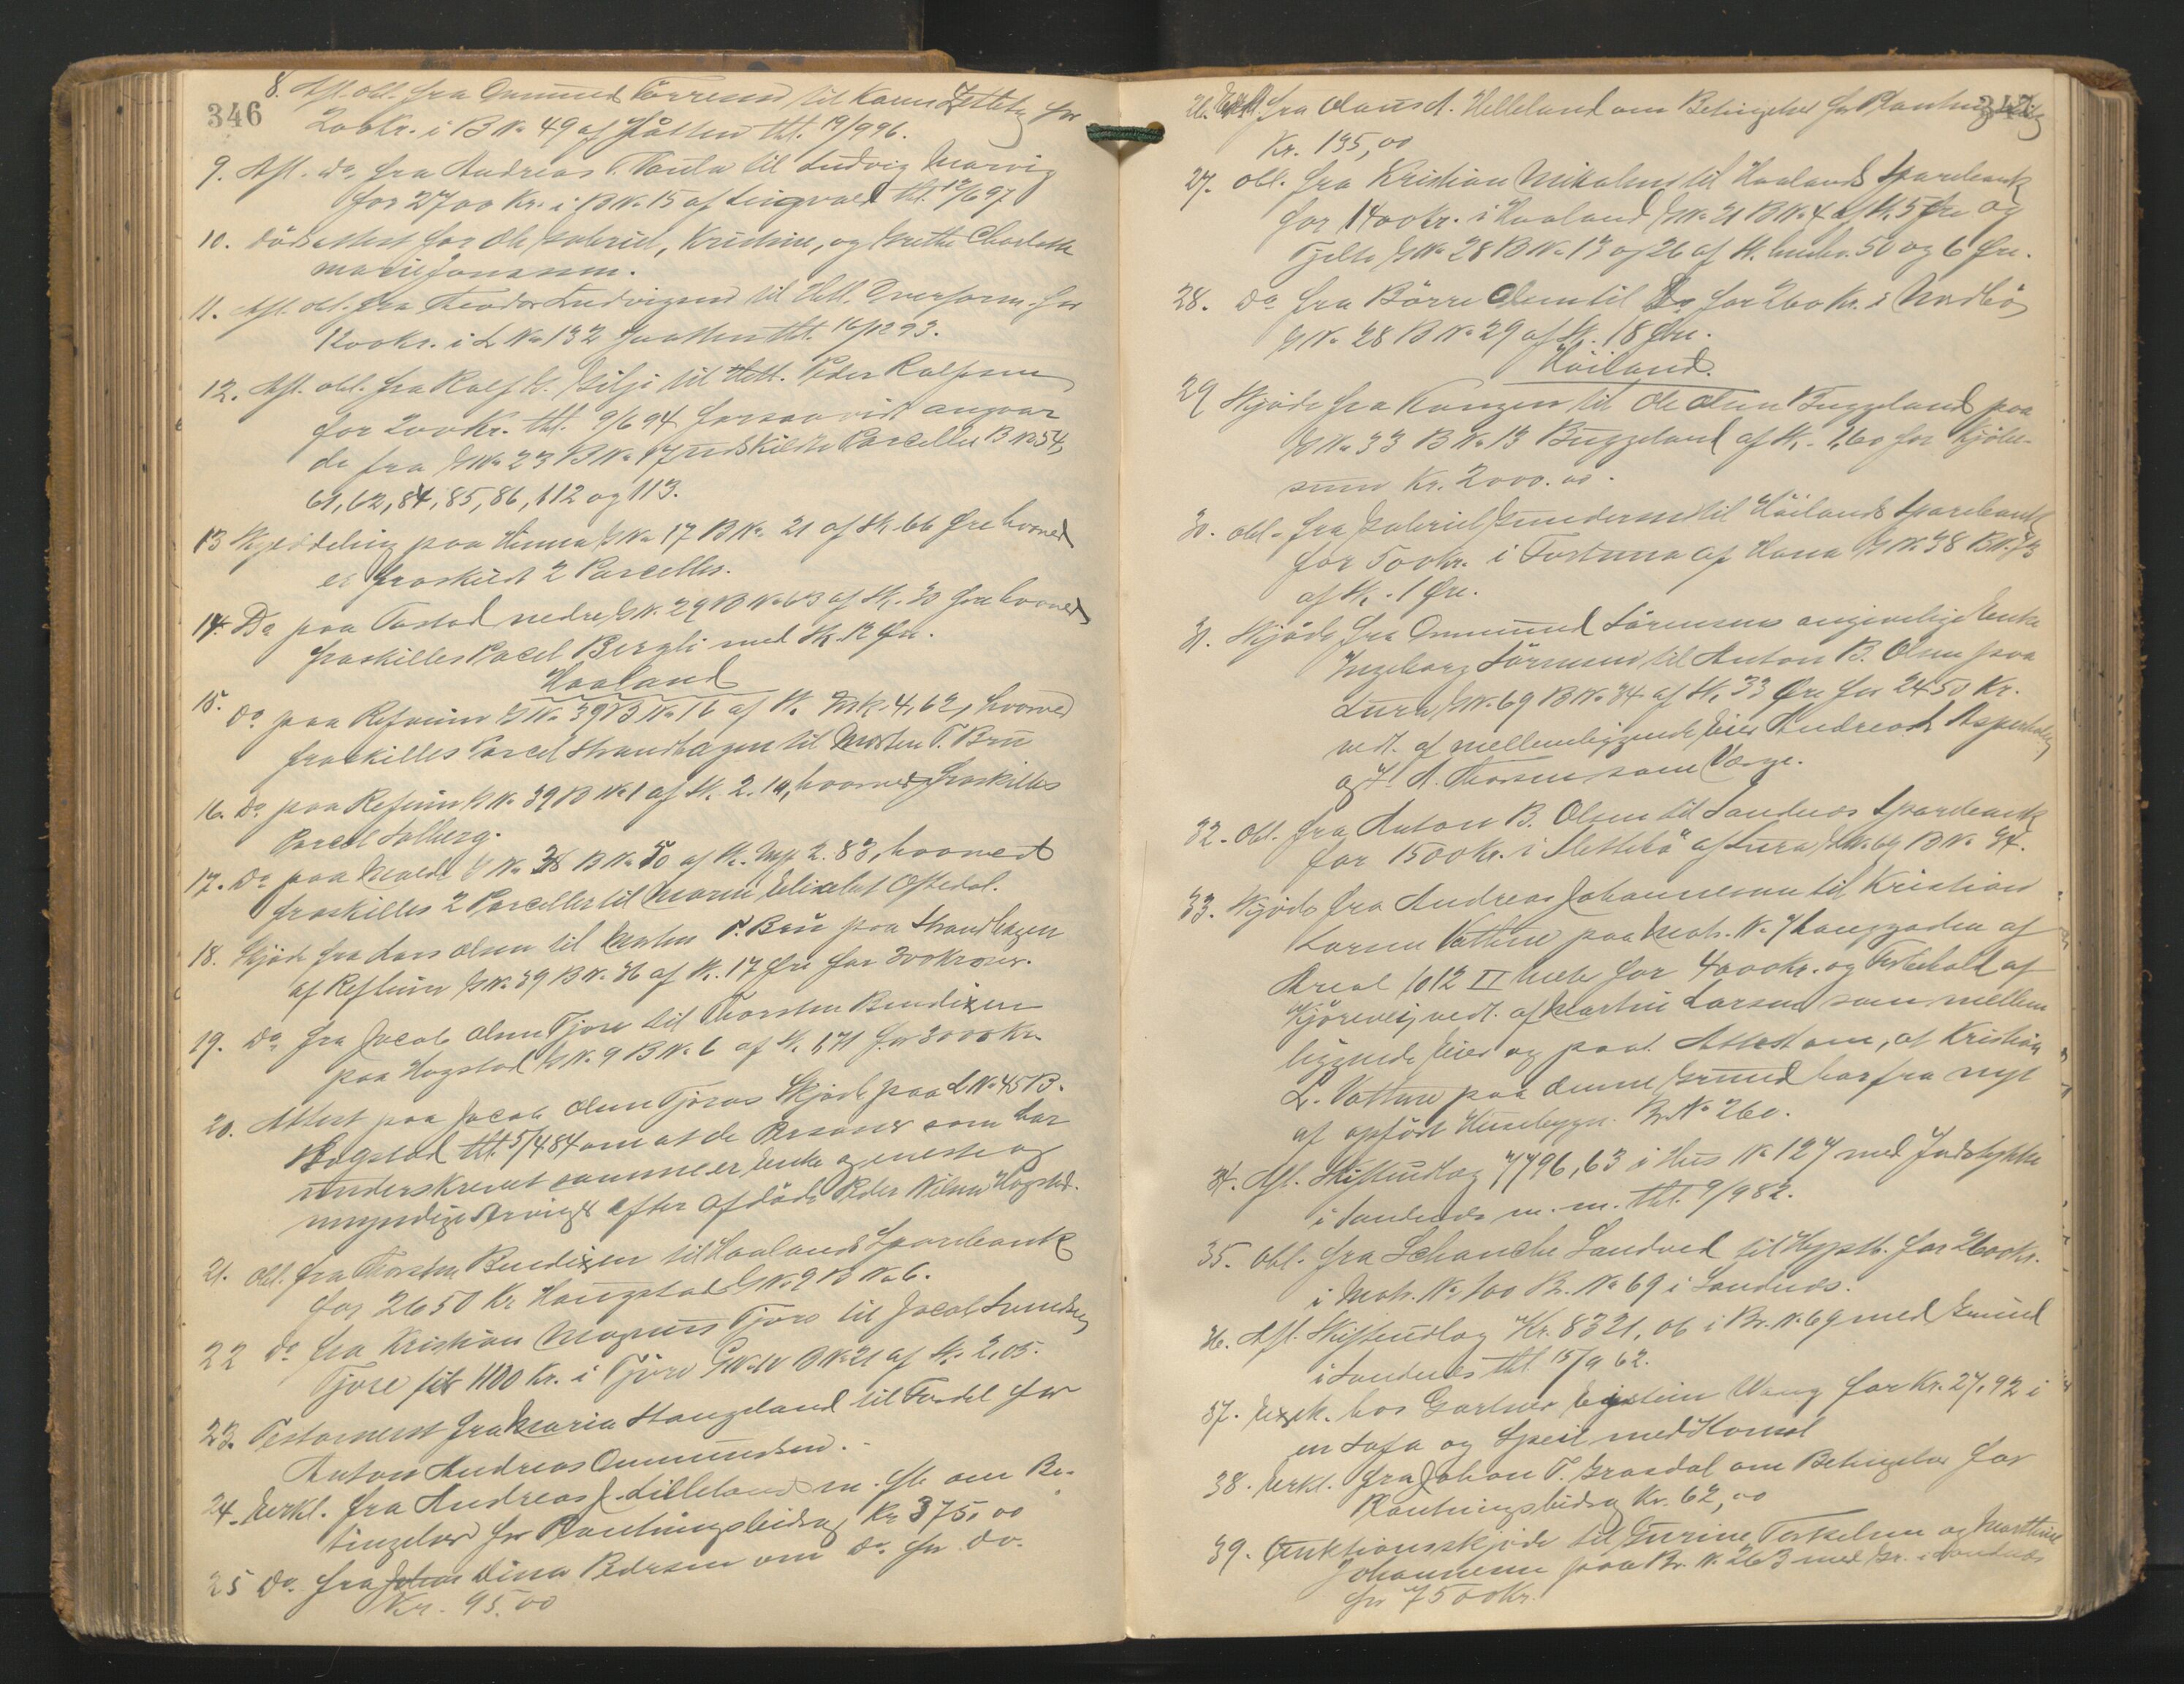 346
8. Afl. obl. fra Ommund Törresen til Karen Zetlitz for
200 Kr. i B No 49 af Jåtten tht. 19/9 96.
9. Afl. do fra Andreas T. Vaula til Ludvig Marvig
for 2700 Kr. i B No 15 af Lingvold tht. 12/6 97
10. Dödsattest for Ole Gabriel, Kristine, og Grethe Charlotte
Marie Jonassen.
11. Afl. obl. fra Theodor Ludvigsen til Hetl. Overform. for
1200 Kr. i L No 132 Jaatten tht. 16/12 93.
12. Afl. obl. fra Rolf G. Gilje til Hetl. Peder Rolfsen
for 200 Kr. tht. 9/6 94 forsaavidt angaar
de fra G No 23 B No 17 udskilte Parceller B No 54,
61, 62, 84, 85, 86, 112 og 113.
13 Skylddeling paa Hinna G No 17 B No 21 af Sk. 66 Øre hvorved
er fraskilt 2 Parceller.
14. Do paa Tastad nedre G N. 29 B No 63 af Sk. 30 Øre hvorved
fraskilles Pacel Bergli med Sk. 12 Øre.
Haaland
15. do paa Refsnæs G No 39 B No 16 af Sk. Mrk. 4,62, hvorved
fraskilles Parcel Strandhagen til Morten T. Bru
16. do paa Refsnæs G No 39 B No 1 af Sk. 2.19, hvorved fraskilles
Parcel Solberg.
17. do paa Malde G No 38 B No 50 af Sk. My. 2.83, hvorved
fraskilles 2 Parceller til Maren Elisabet Oftedal.
18. Skjöde fra Lars Olsen til Morten T. Bru paa Strandhagen
af Refsnæs G No 39 B N. 36 af Sk. 17 Øre for 300 Kroner.
19. do fra Jacob Olsen Tjora til Thorsten Bendixen
paa Hogstad G N. 9 B No 6 af Sk. 1,71 for 3000 Kr.
20. Attest paa Jacob Olsen Tjoras Skjöde paa L No 45 B.
Hogstad tht. 5/4 84 om at de Personer som har
underskrevet samme er Enke og eneste og
myndige Arvinger efter afdöde Peder Nilsen Hogstad.
21. Obl. fra Thorsten Bendixen til Haalands Sparebank
for 2650 Kr Haugstad G No 9 B No 6.
22 do fra Kristian Magnus Tjora til Jacob Svendsen
Tjore for 1100 Kr. i Tjore G No 10 B No 21 af Sk. 2,05.
23. Testament fra Maria Stangeland til Fordel for
Anton Andreas Ommundsen.
24. Erkl. fra Andreas J. Lilleland m. fl. om Be-
tingelser for Plantningsbidrag Kr 375,00
25 do. fra Johan Dina Pedersen om do. for do.
Kr. 95,00
347
26. Erkl. fra Olaus A. Helleland om Betingelser for Plantningsbidrag
Kr. 135,00
27. Obl. fra Kristian Mikalsen til Haalands Sparebank
for 1400 Kr. i Haaland G No 21 B No 4 af Sk. 5 Øre og
Tjelte G No 28 B No 13 og 26 af Sk. henhv. 50 og 6 Øre.
28. do fra Börre Olsen til Do for 260 Kr. i Nordbö
G No 28 B No 29 af Sk. 18 Øre.
Höiland.
29 Skjöde fra Kongen til Ole Olsen Buggeland paa
G No 33 B No 13 Buggeland af Sk. 1,60 for Kjöbe-
sum Kr. 2000.00.
30. Obl. fra Gabriel Gundersen til Höilands Sparebank
for 500 Kr. i Fortuna af Hana G No 38 B N. 73
af Sk. 1 Øre.
31. Skjöde fra Ommund Sörensens angivelige Enke
Ingeborg Sörensen til Anton B. Olsen paa
Lura G No 69 B No 34 af Sk. 33 Øre for 2450 Kr.
vedt. af mellemliggende Eier Andreas A. Asperholen
og J. A. Thorsen som Værge.
32. Obl. fra Anton B. Olsen til Sandnes Sparebank
for 1500 Kr. i Slettebö af Lura G No 69 B No 34.
33. Skjöde fra Andreas Johannesen til Kristian
Larsen Vatne paa Matr. No 7 Langgaden af
Areal 1012 □ Meter for 4000 Kr. og Forbehold af
Kjörevei, vedt. af Martin Larsen som mellem
liggende Eier og paat. Attest om, at Kristian
L. Vatne paa denne Grund har fra nyt
af opfört Husebygn. Br. No 260.
34. Afl. Skifteudlæg 7796,63 i Hus No 127 med Jordstykke
i Sandnes m. m. tht. 9/9 82.
35. Obl. fra Schanche Sandved til Hypth. for 2600 Kr.
i Matr. No 100 Br. No 69 i Sandnes.
36. Afl. Skifteudlæg Kr. 8321,06 i Br. No 69 med Grund
i Sandnes tht. 15/9 62.
37. Exek. hos Gartner Eystein Wang for Kr. 27,92 i
en Sofa og Speil med Konsol
38. Erkl. fra Johan T. Grasdal om Betingelser for
Plantningsbidrag Kr. 62,00
39. Auktionsskjöde til Gurine Torkelsen og Marthine
Johannesen paa Br. N. 263 med Gr. i Sandnes
for 7500 Kr.